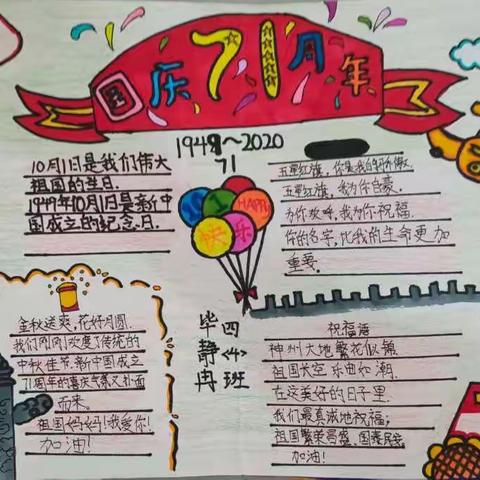 国庆71周年
1949~2020
71
10月1日是我们伟大
祖国的生日.
1949年10月1日是新中
国成立的纪念日.
五星红旗,你是我的骄傲.
五星红旗,我为你自豪.
为你欢呼,我为你祝福.
你的名字,比我的生命更加
重要.
HAPPY
快乐
金秋送爽,花好月圆.
我们刚刚欢度了传统的
中秋佳节.新中国成立
71周年的喜庆气氛又扑面
而来.
祖国妈妈!我爱你!
加油!
四<4>班
毕静冉
祝福语
神州大地繁花似锦,
祖国长空乐曲如潮.
在这美好的日子里.
我们最真诚地祝福:
祖国繁荣昌盛.国泰民安
加油!